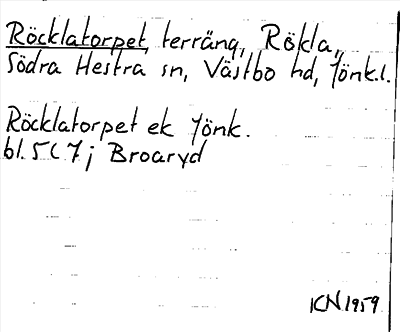 Röcklatorpet, terräng, Rökla,
Södra Hestra sn, Västbo hd, Jönk.l.
Röcklatorpet ek Jönk.
bl. 5 C 7 j Broaryd
KN 1959